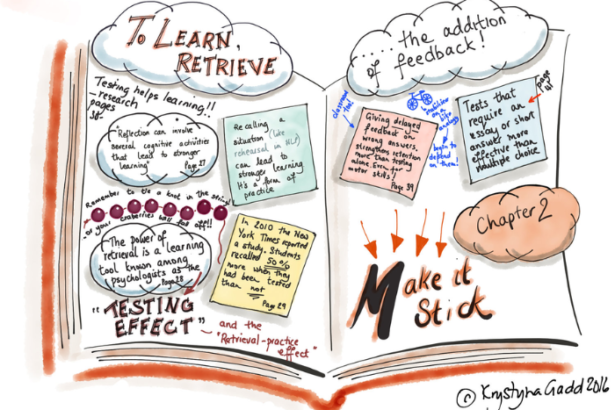 To LEARN,
RETRIEVE
Testing helps learning!!
- research
pages
"Reflection can involve
several cognitive activities
that lead to stronger
learning"
Page 27
Recalling a
situation (like
rehearsal in NLP)
can lead to
stronger learning
It's a form of
practice
Remember to tie a knot in the string!
-or your cranberries will fall off!!
The power of
retrieval is a learning
tool known among
psychologists as the
Page 28
"TESTING
EFFECT"
and the
"Retrieval-practice
effect"
In 2010 the New
York Times reported
a study. Students
recalled 50%
more when they
had been tested
than not
Page 29
..... the addition
of feedback!
classroom
too!
Giving delayed
feedback on
wrong answers,
strengthens retention
more than testing
alone. Even for
motor skills!
Page 39
stabilisers
begin to
depend
on them.
page
41
Tests that
require an
essay or short
answer more
effective than
multiple choice
Chapter 2
Make it
Stick
© Krystyna Gadd 2016